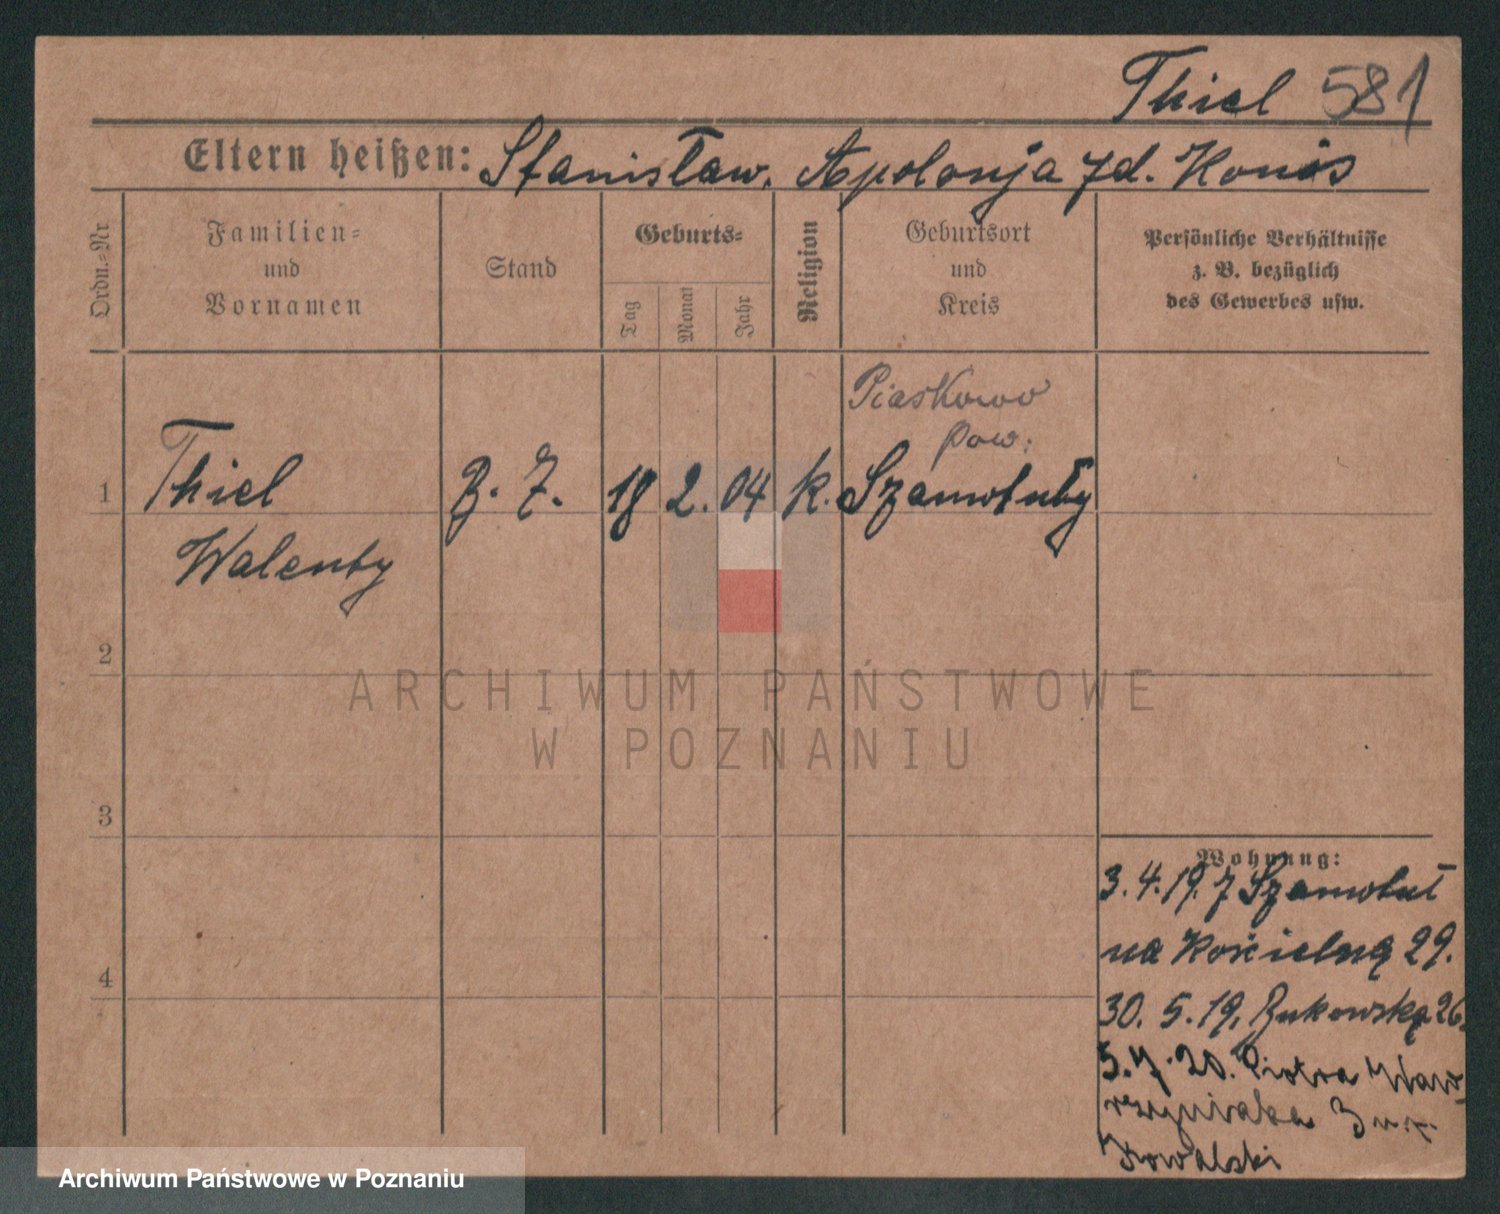 Thiel 581
Eltern heißen: Stanisław, Apolonja zd. Konis
Ordn.=Nr
Familien=
und
Vornamen
Stand
Geburts=
Tag
Monat
Jahr
Religion
Geburtsort
und
Kreis
Persönliche Verhältnisse
z. B. bezüglich
des Gewerbes usw.
Piaskowo
pow.
1 Thiel 18 2. 04 k. Szamotuły
Walenty
2
3
4
Wohnung:
3. 4. 19. z Szamotuł
na Kościelną 29.
30. 5. 19. Bukowska 26.
5. 7. 20. Piotra Waw-
rzyniaka 3
Kowalski
ARCHIWUM PAŃSTWOWE
W POZNANIU
Archiwum Państwowe w Poznaniu